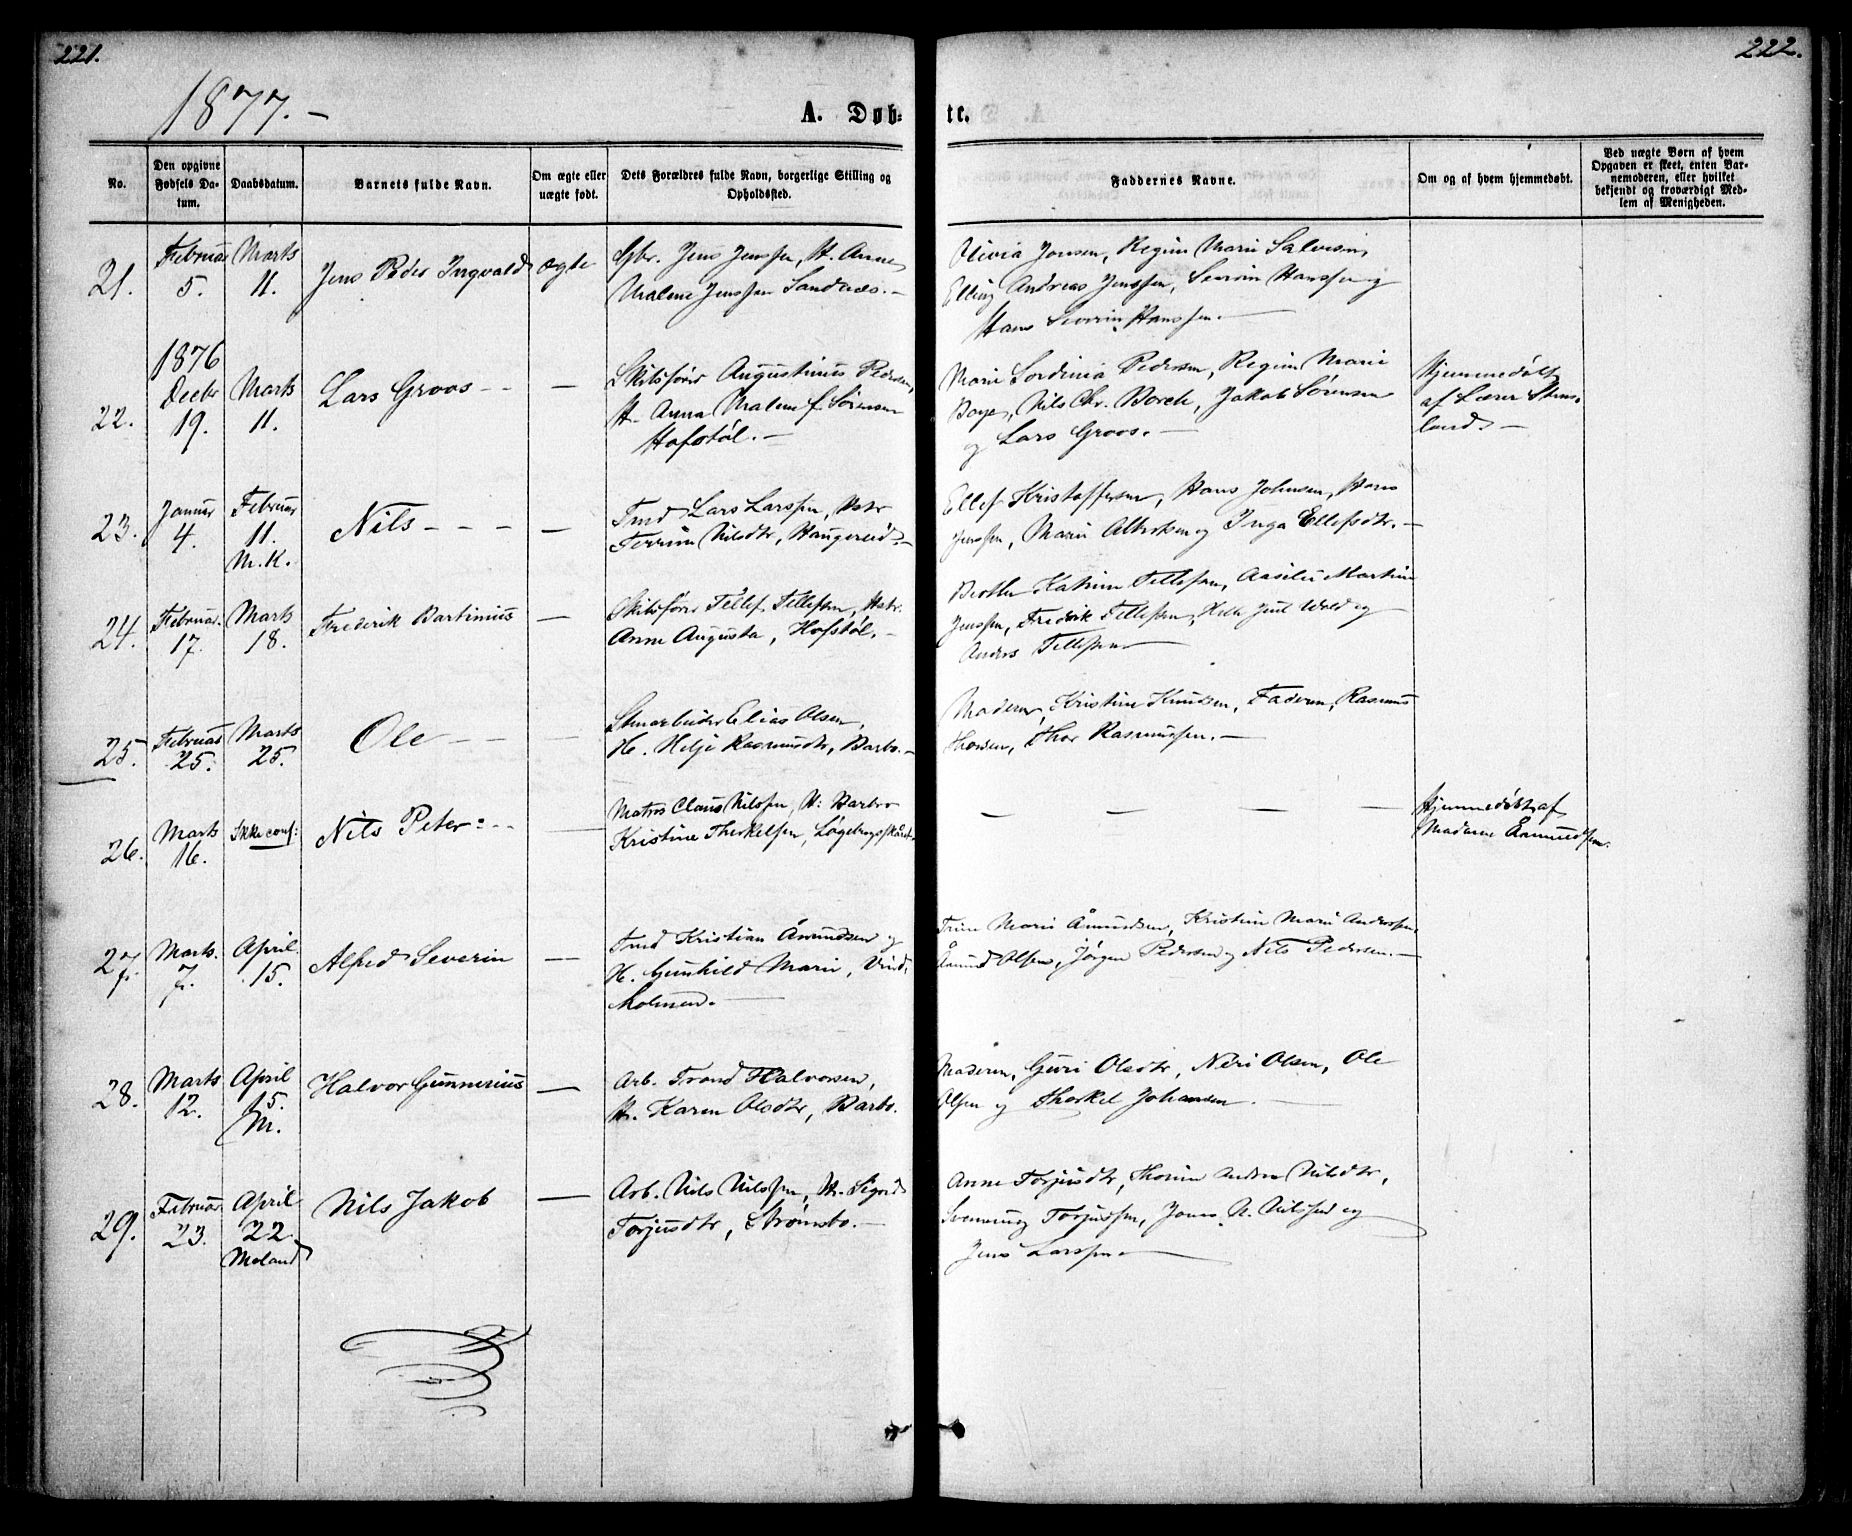 221.
222.
1877. -
A. Døb-
te.
No.
Den opgivne Fødsels Datum.
Daabsdatum.
Barnets fulde Navn.
Om ægte eller uægte født.
Dets Forældres fulde Navn, borgerlige Stilling og Opholdssted.
Faddernes Navne.
Om og af hvem hjemmedøbt.
Ved uægte Børn af hvem Opgaven er skeet, enten Barnemoderen, eller hvilket bekjendt og troværdigt Medlem af Menigheden.
21.
Februar 5.
Marts 11.
Jens Peder Ingvald
ægte
Gbr. Jens Jenssen, H. Anne
Malene Jenssen Sandnes. -
Olivia Jensen, Regine Marie Salvesen,
Elling Andreas Jenssen, Severin Hanssen og
Hans Severin Hanssen. -
22.
1876 Decbr 19.
Marts 11.
Lars Groos - -
-
Skibsfører Augustinus Pedersen,
H. Anna Malene f. Sørensen
Hofstøl. -
Marie Pedersen, Regine Marie
Boye, Nils Chr. Borch, Jakob Sørensen
og Lars Groos. -
Hjemmedøbt
af Lærer Stens-
land. -
23.
Januar 4.
Februar 11. M.K.
Nils - - -
-
Tmd Lars Larssen, Hstr
Terrine Nilsdtr, Haugereid. -
Ellef Kristoffersen, Hans Johnsen, Hans
Jenssen, Marie og Inga Ellefsdtr. -
24.
Februar 17.
Marts 18.
Frederik Bartinius
-
Skibsfører Tellef Tellefsen, Hstr.
Anne Augusta, Hofstøl. -
Berthe Katrine Tellefsen, Aasilie Martine
Jenssen, Fredrik Tellefsen, Juul Wold og
Anders Tellefsen -
25.
Februar 25.
Marts 25.
Ole - -
-
Stenarbeider Elias Olsen,
H. Helje Rasmusdtr, Barbo. -
Moderen, Kristine Knudsen, Faderen, Rasmus
Thorsen, Thor Rasmussen. -
26.
Marts 16.
Ikke conf:
Nils Peter: - -
-
Matros Claus Nilssen, H: Barbro
Kristine Therkelsen,
- - - -
Hjemmedøbt af
Madame Aamundsen.
27.
Marts 7.
April 15.
Alfred Severin
-
Tmd Kristian Åmundsen og
H. Gunhild Marie, Vind-
holmen. -
Trine Marie Åmundsen, Kristine Marie Anderssen,
Åmund Olsen, Jørgen Pedersen og Nils Pedersen. -
28.
Marts 12.
April 15. M.
Halvor Gunnerius
-
Arb. Trond Halvorsen,
H. Karen Olsdtr, Barbo.
Moderen, Guri Olsdtr, Neri Olsen, Ole
Olsen og Therkel Johansen. -
29.
Februar 23.
April 22 Moland
Nils Jakob
-
Arb. Nils Nilssen, H. Sigrid
Torjusdtr, Strømsbo. -
Anne Torjusdtr, Thorine Andrea Nilsdtr,
Svenning Torjussen, Jons N. Nilssen og
Jens Larssen -